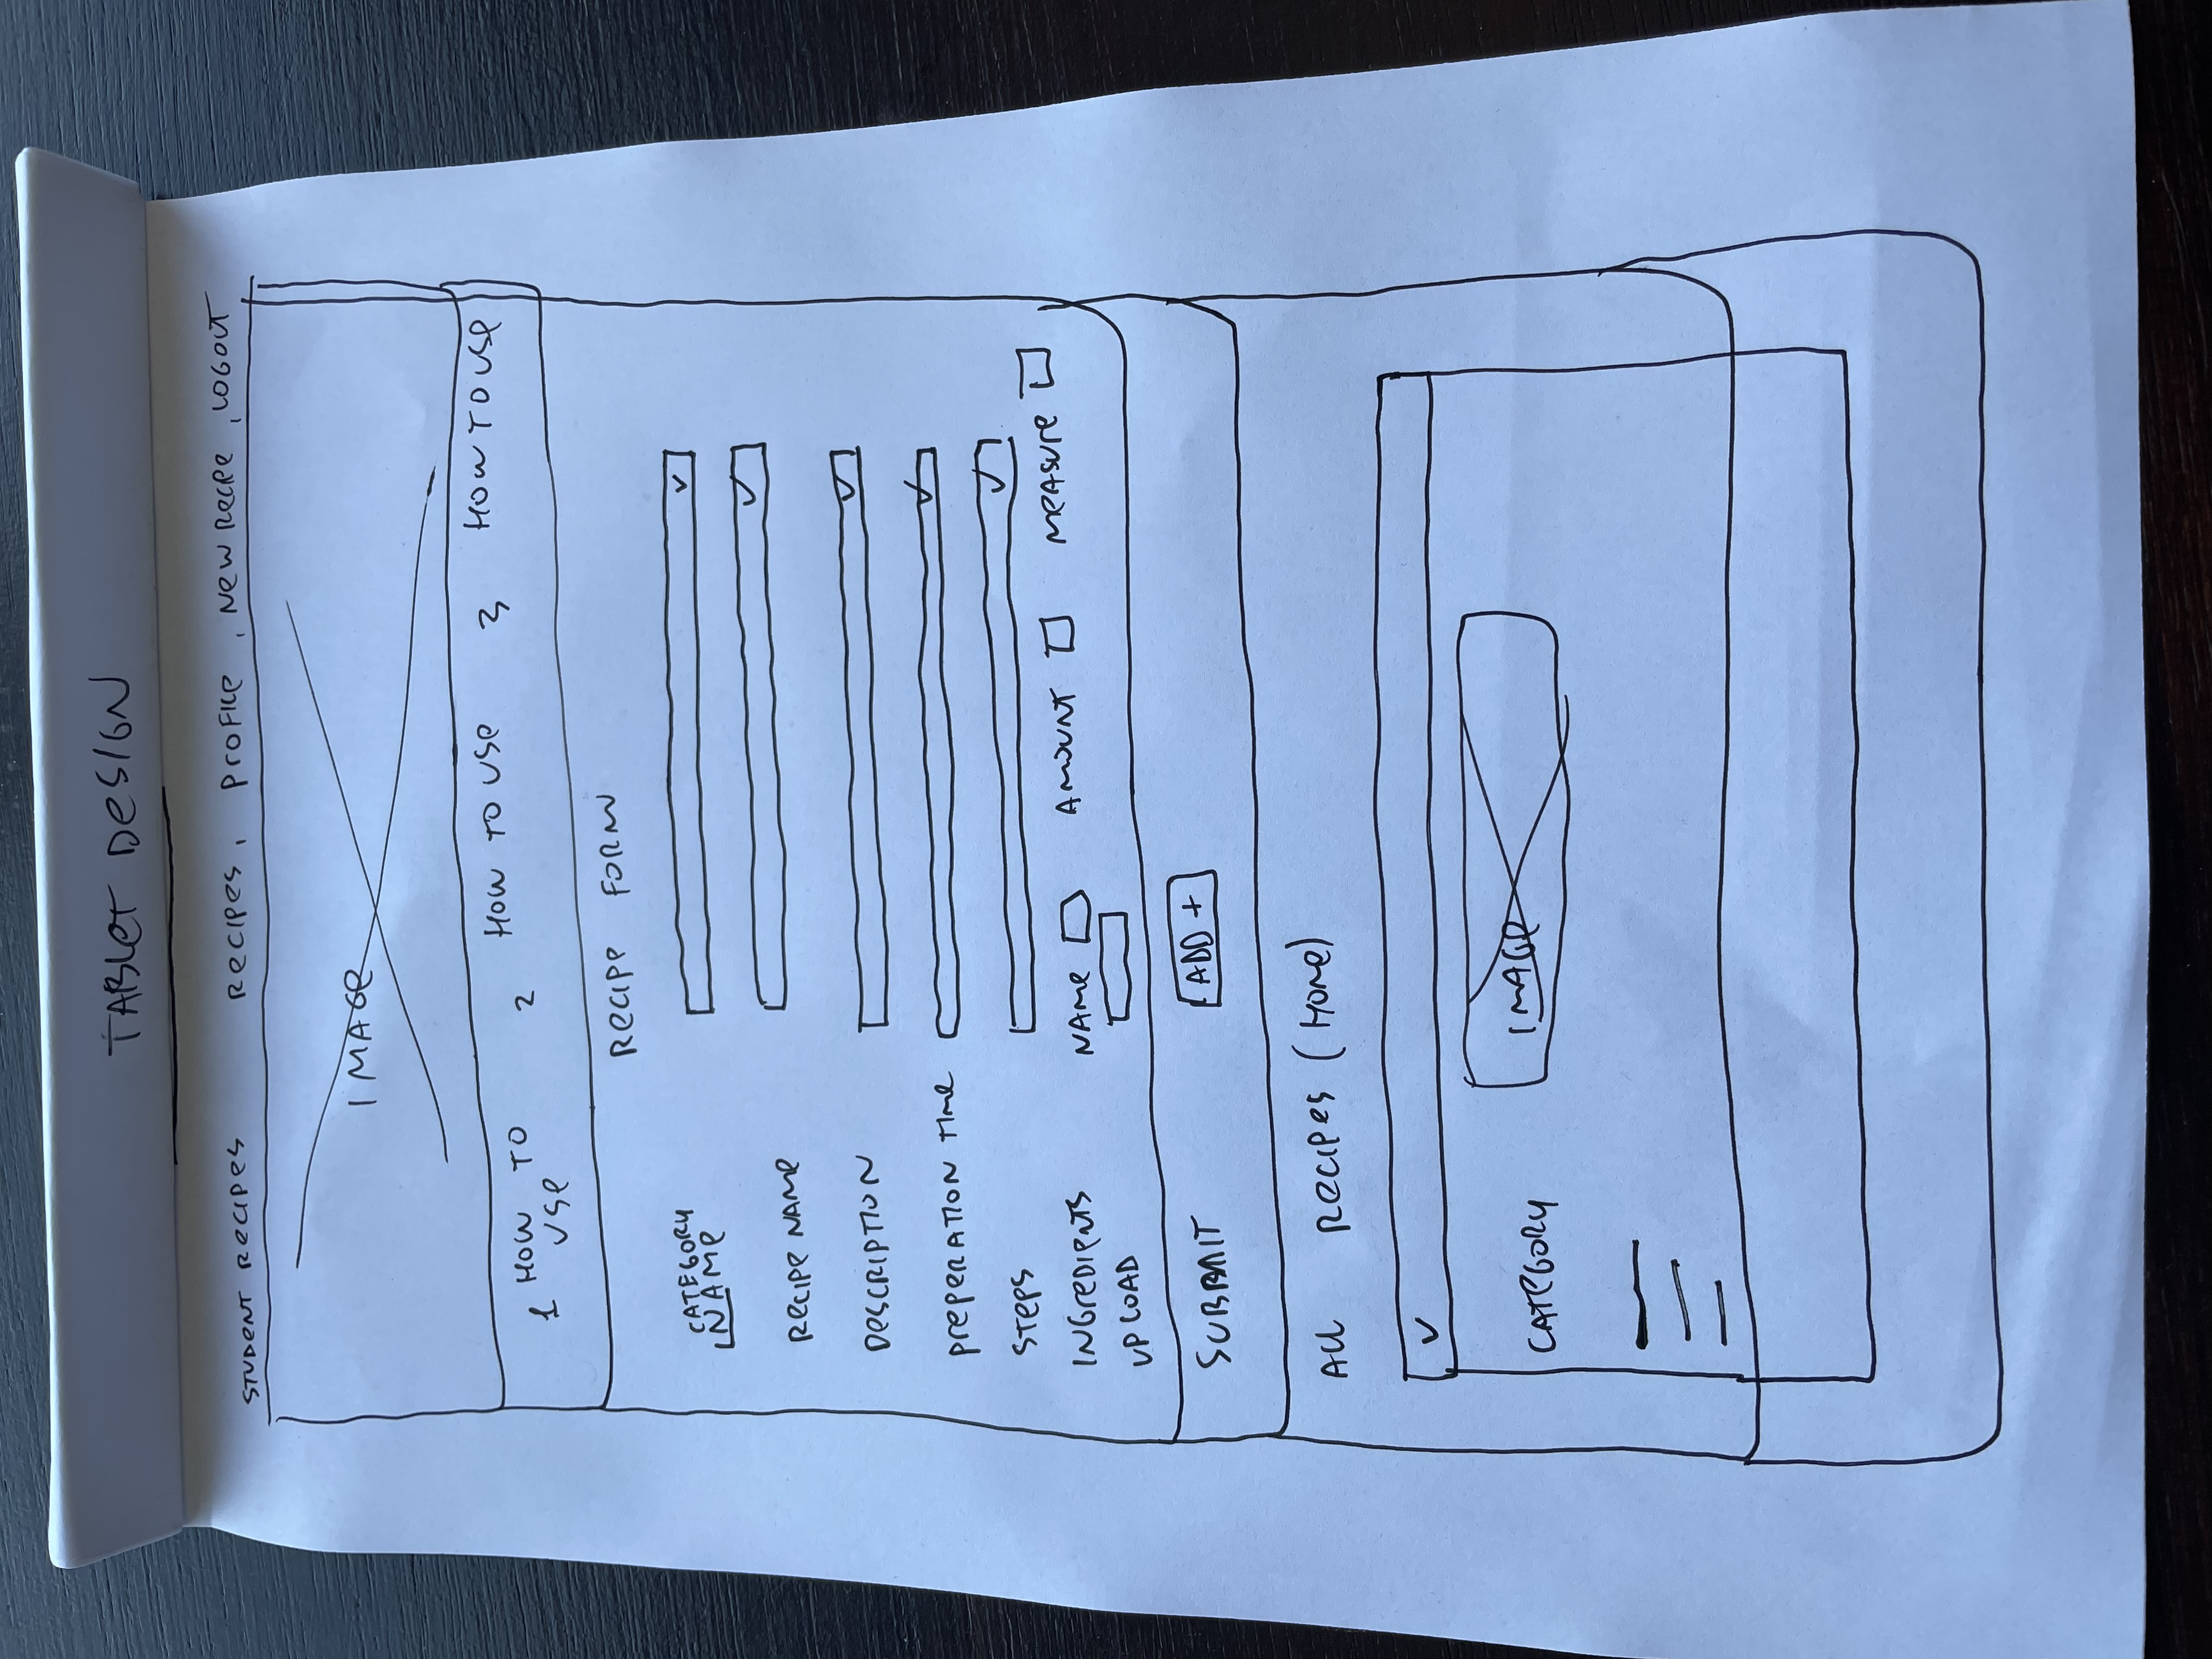 TABLET DESIGN
STUDENT RECIPES RECIPES, PROFILE, NEW RECIPE, LOGOUT
IMAGE
1 HOW TO USE 2 HOW TO USE 3 HOW TO USE
RECIPE FORM
CATEGORY
NAME
RECIPE NAME
DESCRIPTION
PREPERATION TIME
STEPS
INGREDIENTS NAME AMOUNT MEASURE
UPLOAD
SUBMIT ADD +
ALL RECIPES (HOME)
CATEGORY IMAGE